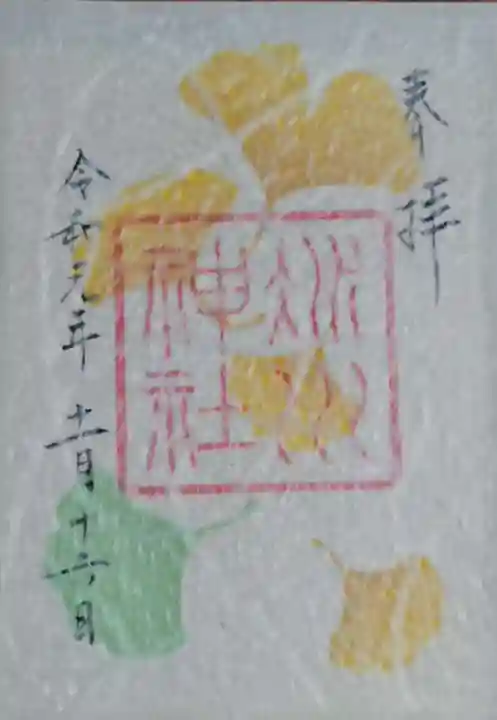 奉拝
冰川
神社
令和元年 十一月十六日